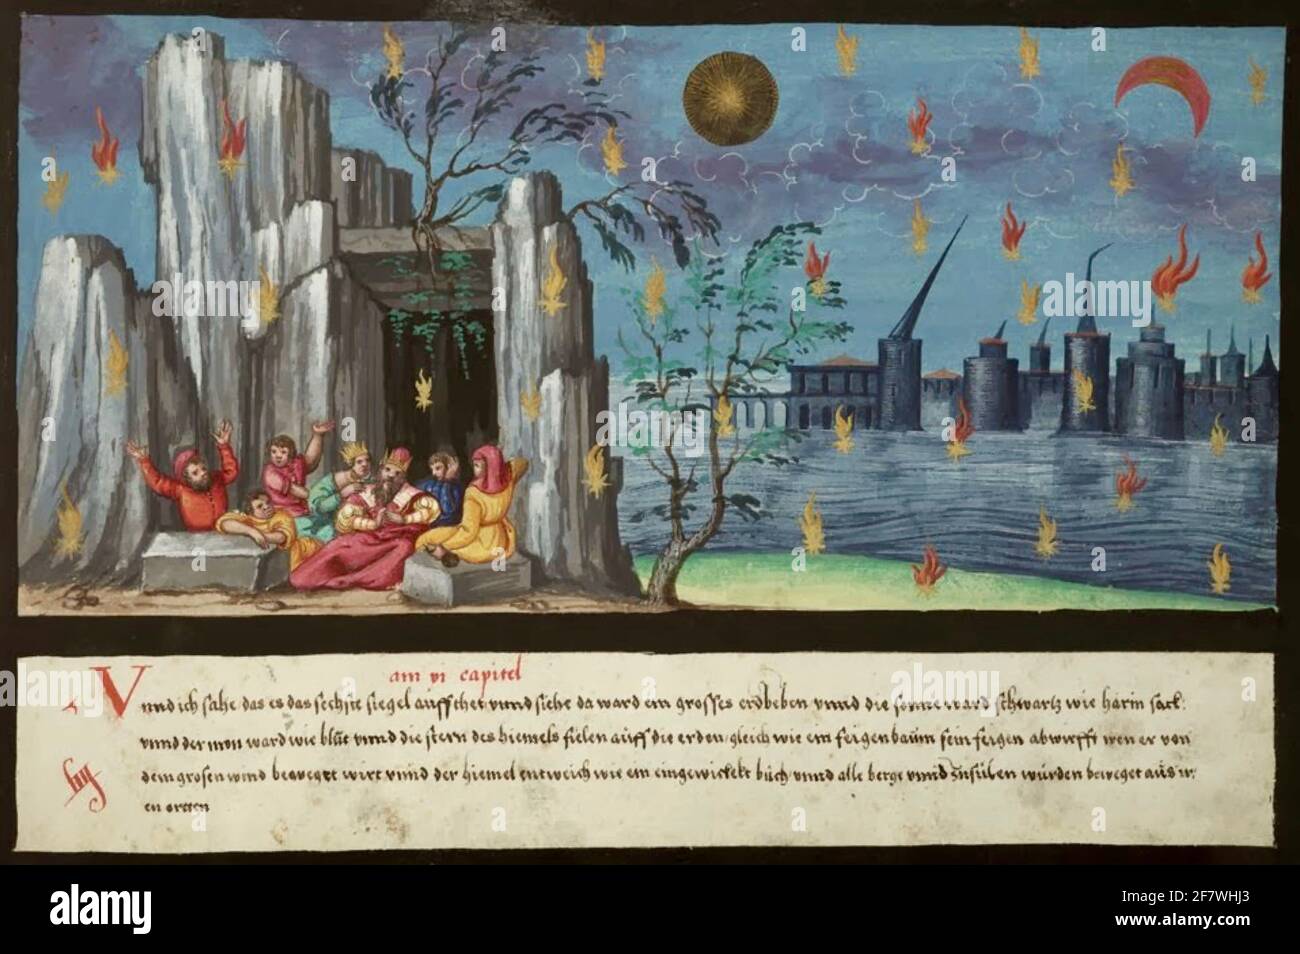 am vi capitel
Vnnd ich sahe das es das sechste siegel auffthet vnnd siehe da ward ein grosses erdbeben vnnd die sonne ward schwartz wie harin sack:
vnnd der mon ward wie blut vnnd die stern des hiemels fielen auff die erden, gleich wie ein feigenbaum sein feigen abwirfft wen er von
dem grosen wind beweget wirt vnnd der hiemel entweich wie ein eingewickelt buch vnnd alle berge vnnd Insülen würden beweget aus ir
en orten
alamy
Image ID: 2F7WHJ3
www.alamy.com